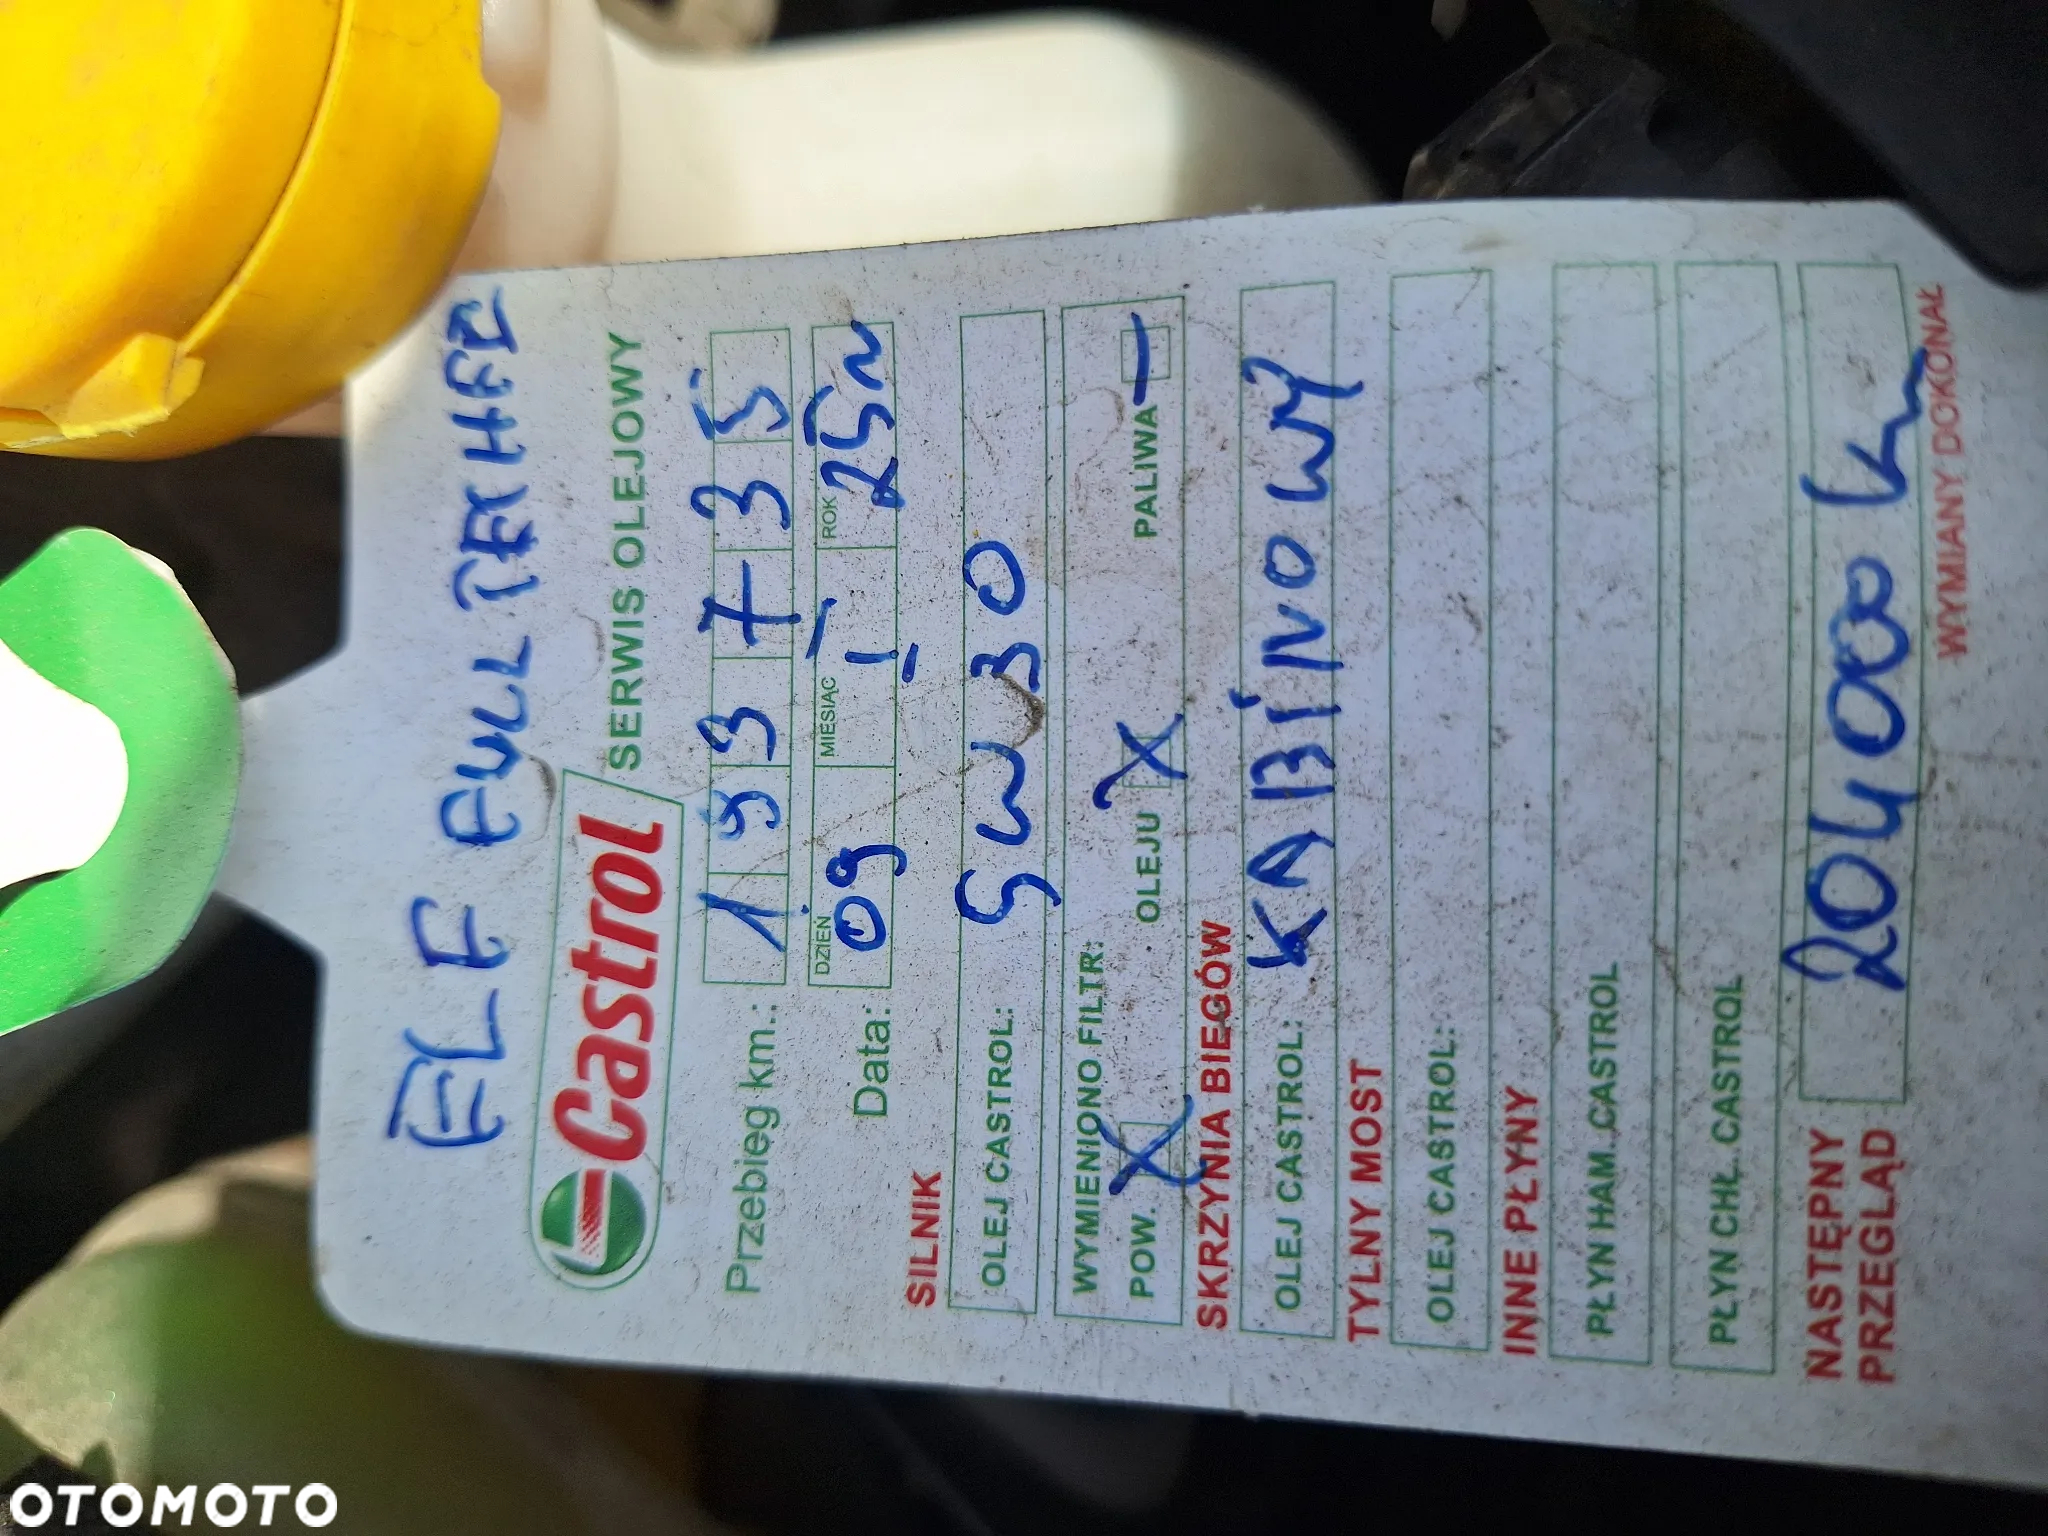 ELF FULL TECH FE
Castrol
SERWIS OLEJOWY
Przebieg km.: 193735
DZIEŃ MIESIĄC ROK
Data: 09 I 25
SILNIK
OLEJ CASTROL: 5W30
WYMIENIONO FILTR:
POW. X OLEJU X PALIWA —
SKRZYNIA BIEGÓW
OLEJ CASTROL: KABINOWY
TYLNY MOST
OLEJ CASTROL:
INNE PŁYNY
PŁYN HAM. CASTROL
PŁYN CHŁ. CASTROL
NASTĘPNY
PRZEGLĄD 204000 km
WYMIANY DOKONAŁ
OTOMOTO